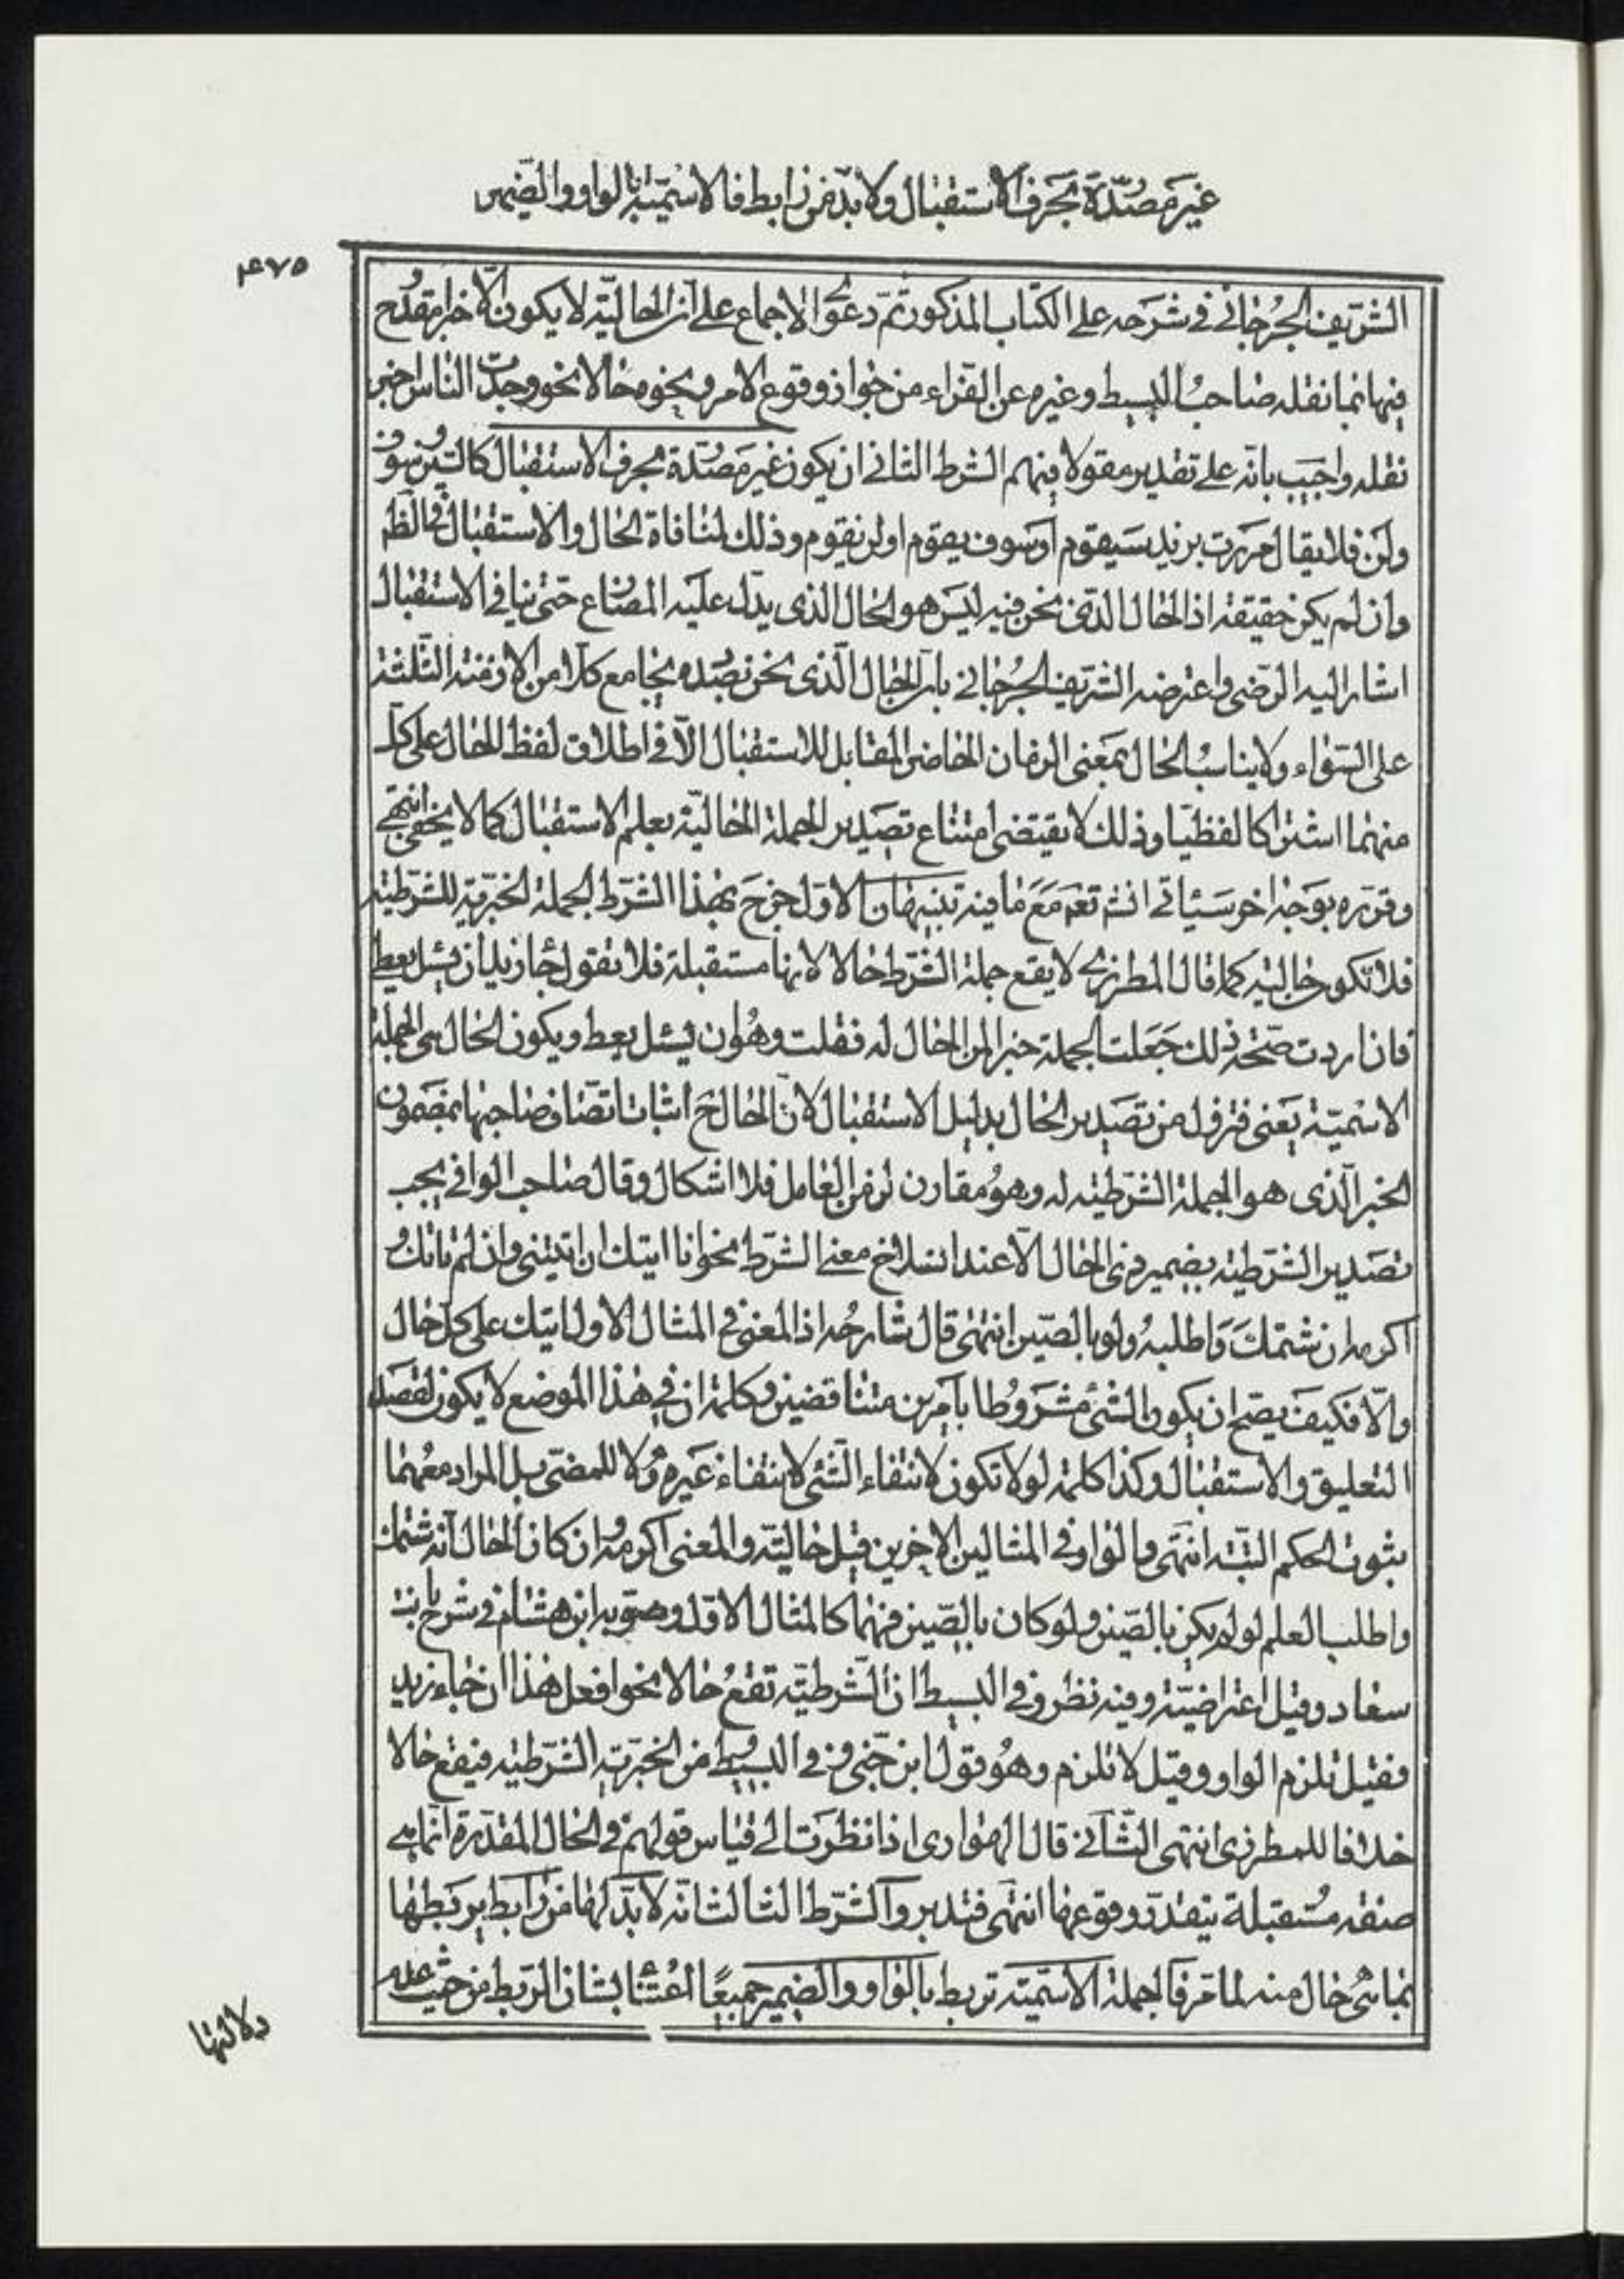 غير مصدّرة بحرف الاستقبال ولا بدّ من رابط فالاسميّة بالواو والضمير
۴۷۵
الشريف الجرجاني في شرحه على الكتاب المذكور ثمّ دعوى الاجماع على انّ الحاليّة لا يكون الّا خبرا مقدوح
فيها بما نقله صاحب البسيط وغيره عن الفراء من جواز وقوع الامر ونحوه حالا نحو وجدت الناس اخبر
تقله واجيب بانّه على تقدير مقولا فيهم الشرط الثاني ان يكون غير مصدّرة بحرف الاستقبال كالسين وسوف
ولن فلا يقال مررت بزيد سيقوم او سوف يقوم او لن يقوم وذلك لمنافاة الحال والاستقبال في الظ
وان لم يكن حقيقة اذ الحال الذي نحن فيه ليس هو الحال الذي يدل عليه المضارع حتى ينافي الاستقبال
اشار اليه الرضي واعترضه الشريف الجرجاني بان الحال الّذي نحن بصدده يجامع كلا من الازمنة الثلثة
على السّواء ولا يناسب الحال بمعنى الزمان الحاضر المقابل للاستقبال الّا في اطلاق لفظ الحال على كل
منهما اشتراكا لفظيّا وذلك لا يقتضي امتناع تصدير الجملة الحاليّة بعلم الاستقبال كما لا يخفى انتهى
وقرّره بوجه اخر سيأتي انشم تعم مع ما فيه تنبيهان الاوّل خرج بهذا الشرط الجملة الخبريّة الشرطيّة
فلا تكون حالية كما قال المطرزي لا يقع جملة الشرط حالا لانها مستقبلة فلا تقول جاء زيد ان يسئل يعط
فان اردت صحّة ذلك جعلت الجملة خبرا لمن الحال له فقلت وهو ان يسئل يعط ويكون الحال هي الجملة
الاسميّة يعني فترفل من تصدير الحال بدليل الاستقبال لانّ الحال ح اثبات اتصاف صاحبها بمضمون
الخبر الّذي هو الجملة الشرطيّة له وهو مقارن لزمن العامل فلا اشكال وقال صاحب الوافي يجب
تصدير الشرطيّة بضمير ذي الحال الّا عند انسلاخ معنى الشرط نحو انا اتيتك ان اتيتني وان لم تاتك و
اكرمه ان شتمك واطلبه ولو بالصّين انتهى قال شارحه اذ المعنى في المثال الاول اتيتك على كل حال
والّا فكيف يصحّ ان يكون الشئ مشروطا بامرين متناقضين وكلمة ان في هذا الموضع لا يكون لقصد
التعليق والاستقبال وكذا كلمة لو لا تكون لانتفاء الشئ لانتفاء غيره ولا للمضيّ بل المراد معهما
ثبوت الحكم البتّة انتهى والواو في المثالين الاخيرين قيل حاليّة والمعنى اكرمه وان كان الحال انّه شتمك
واطلب العلم لو لم يكن بالصّين ولو كان بالصّين فهما كالمثال الاوّل وصوّبه ابن هشام في شرح بانت
سعاد وقيل اعتراضيّة وفيه نظر وفي البسيط انّ الشرطيّة تقع حالا نحو افعل هذا ان جاء زيد
فقيل تلزم الواو وقيل لا تلزم وهو قول ابن جنّي وفي البسيط من الخبريّة الشرطيّة فيقع حالا
خلافا للمطرزي انتهى الثّاني قال الهواري اذا نظرت الى قياس قولهم في الحال المقدّرة انّما هي
صفة مستقبلة تيقدّر وقوعها انتهى فتدبر والشرط الثالث انّه لا بدّ لها من رابط يربطها
بما هي حال منه لما مرّ فالجملة الاسميّة تربط بالواو والضمير جميعًا اعتناء بشان الربط من حيث عدم
دلالتها